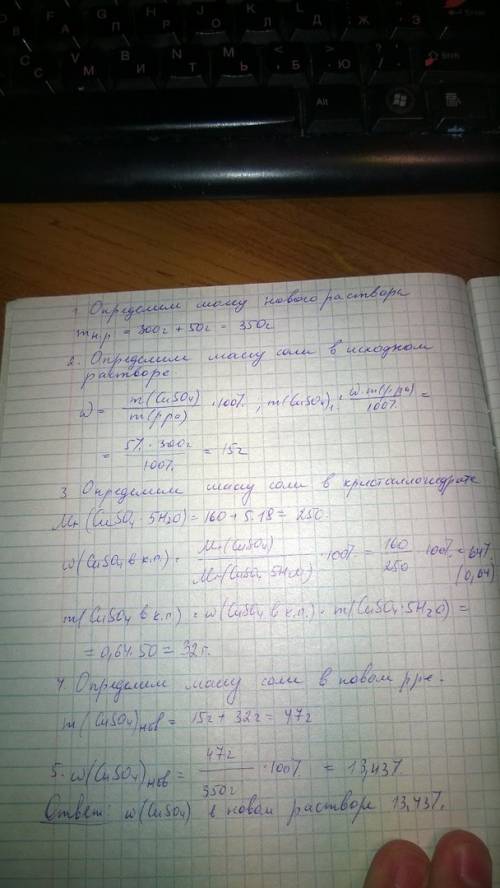 1. Определим массу нового раствора
m н.р = 300г + 50г = 350г
2. Определим массу соли в исходном
растворе
ω = m(CuSO4) / m(р-ра) · 100%, m(CuSO4) = ω · m(р-ра) / 100% =
= 5% · 300г / 100% = 15г
3. Определим массу соли в кристаллогидрате
Mr (CuSO4 · 5H2O) = 160 + 5·18 = 250
ω(CuSO4 в к.г.) = Mr(CuSO4) / Mr(CuSO4·5H2O) · 100% = 160 / 250 · 100% = 64%
(0,64)
m(CuSO4 в к.г.) = ω(CuSO4 в к.г.) · m(CuSO4·5H2O) =
= 0,64·50 = 32г.
4. Определим массу соли в новом р-ре.
m(CuSO4)нов = 15г + 32г = 47г
5. ω(CuSO4)нов = 47г / 350г · 100% = 13,43%
Ответ: ω(CuSO4) в новом растворе 13,43%.